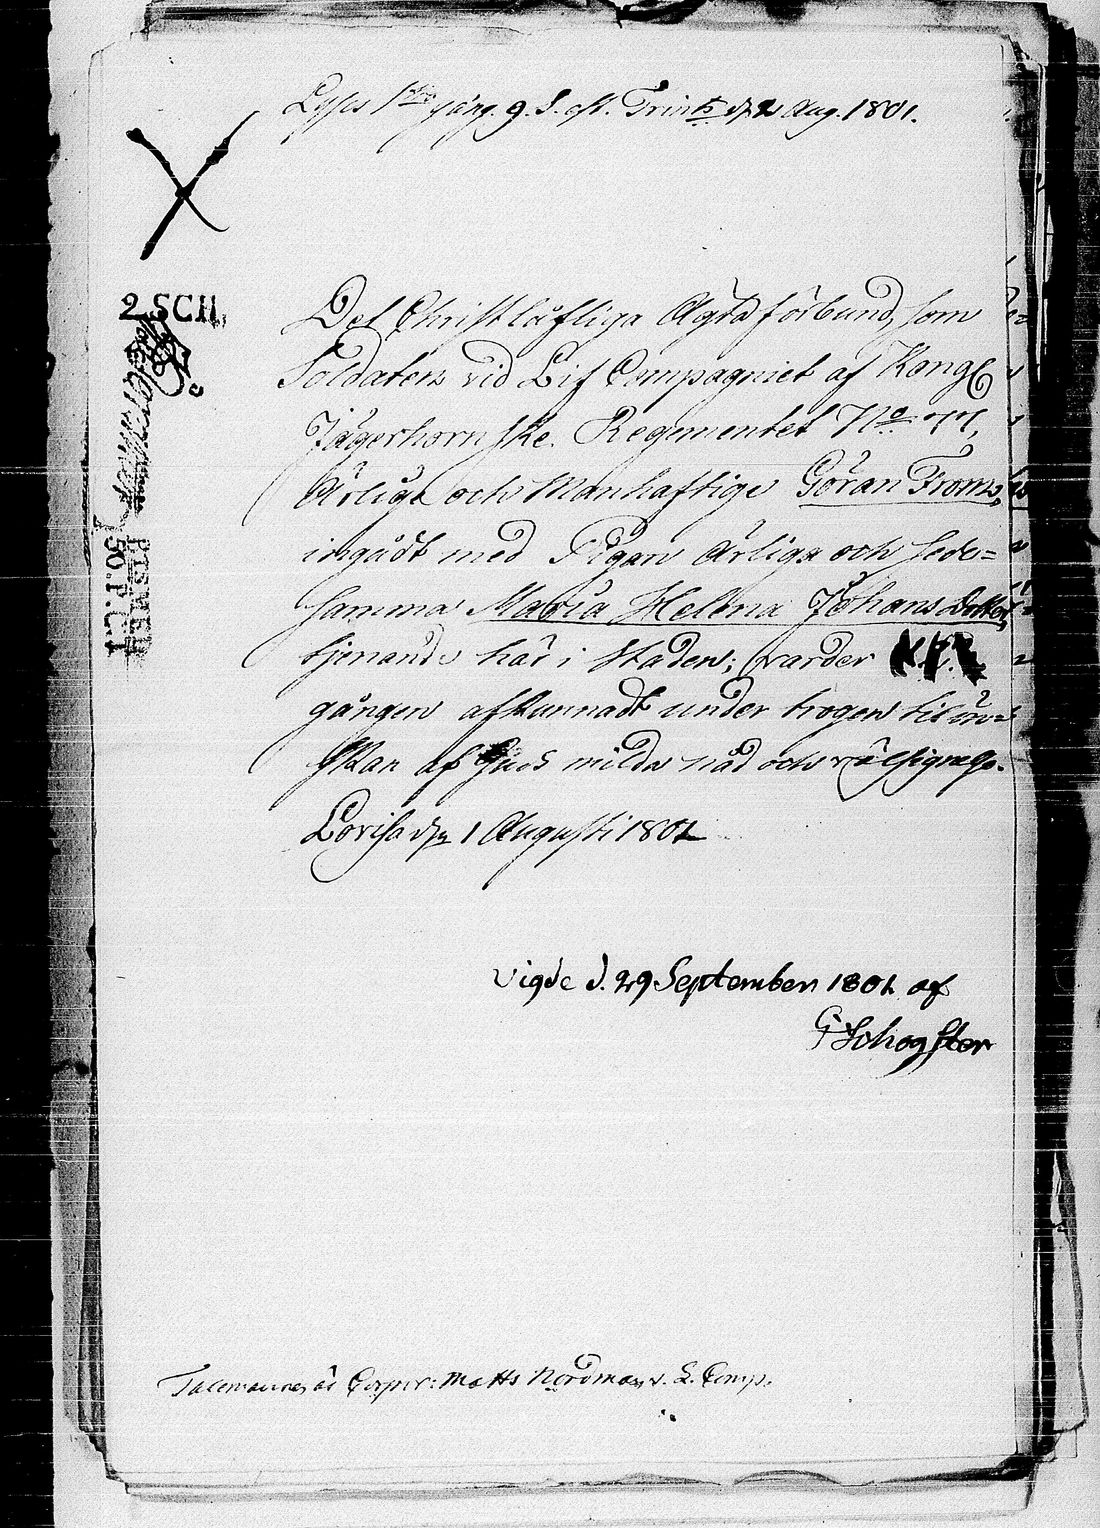 Lyses 1sta gång. 9. S. eft. Trinit. d. 2 Aug. 1801.
2 SCH.
Det Christlofliga Ägta förbund, som
Soldaten vid Lif Compagniet af Kongl
Jägerhornske Regementet No 77,
Ärlige och Manhaftige Göran From,
ingådt med Pigan Ärliga och sede=
samma Maria Helena Johans Dotter,
tjenande här i Staden; varder
gången afkunnadt under trogen tilön=
skan af Guds milda nåd och välsignelse.
Lovisa den 1 Augusti 1801
Vigde d. 29 September 1801 af
G Schogster
Talemannen är Corpor: Matts Nordman v. L. Comp.